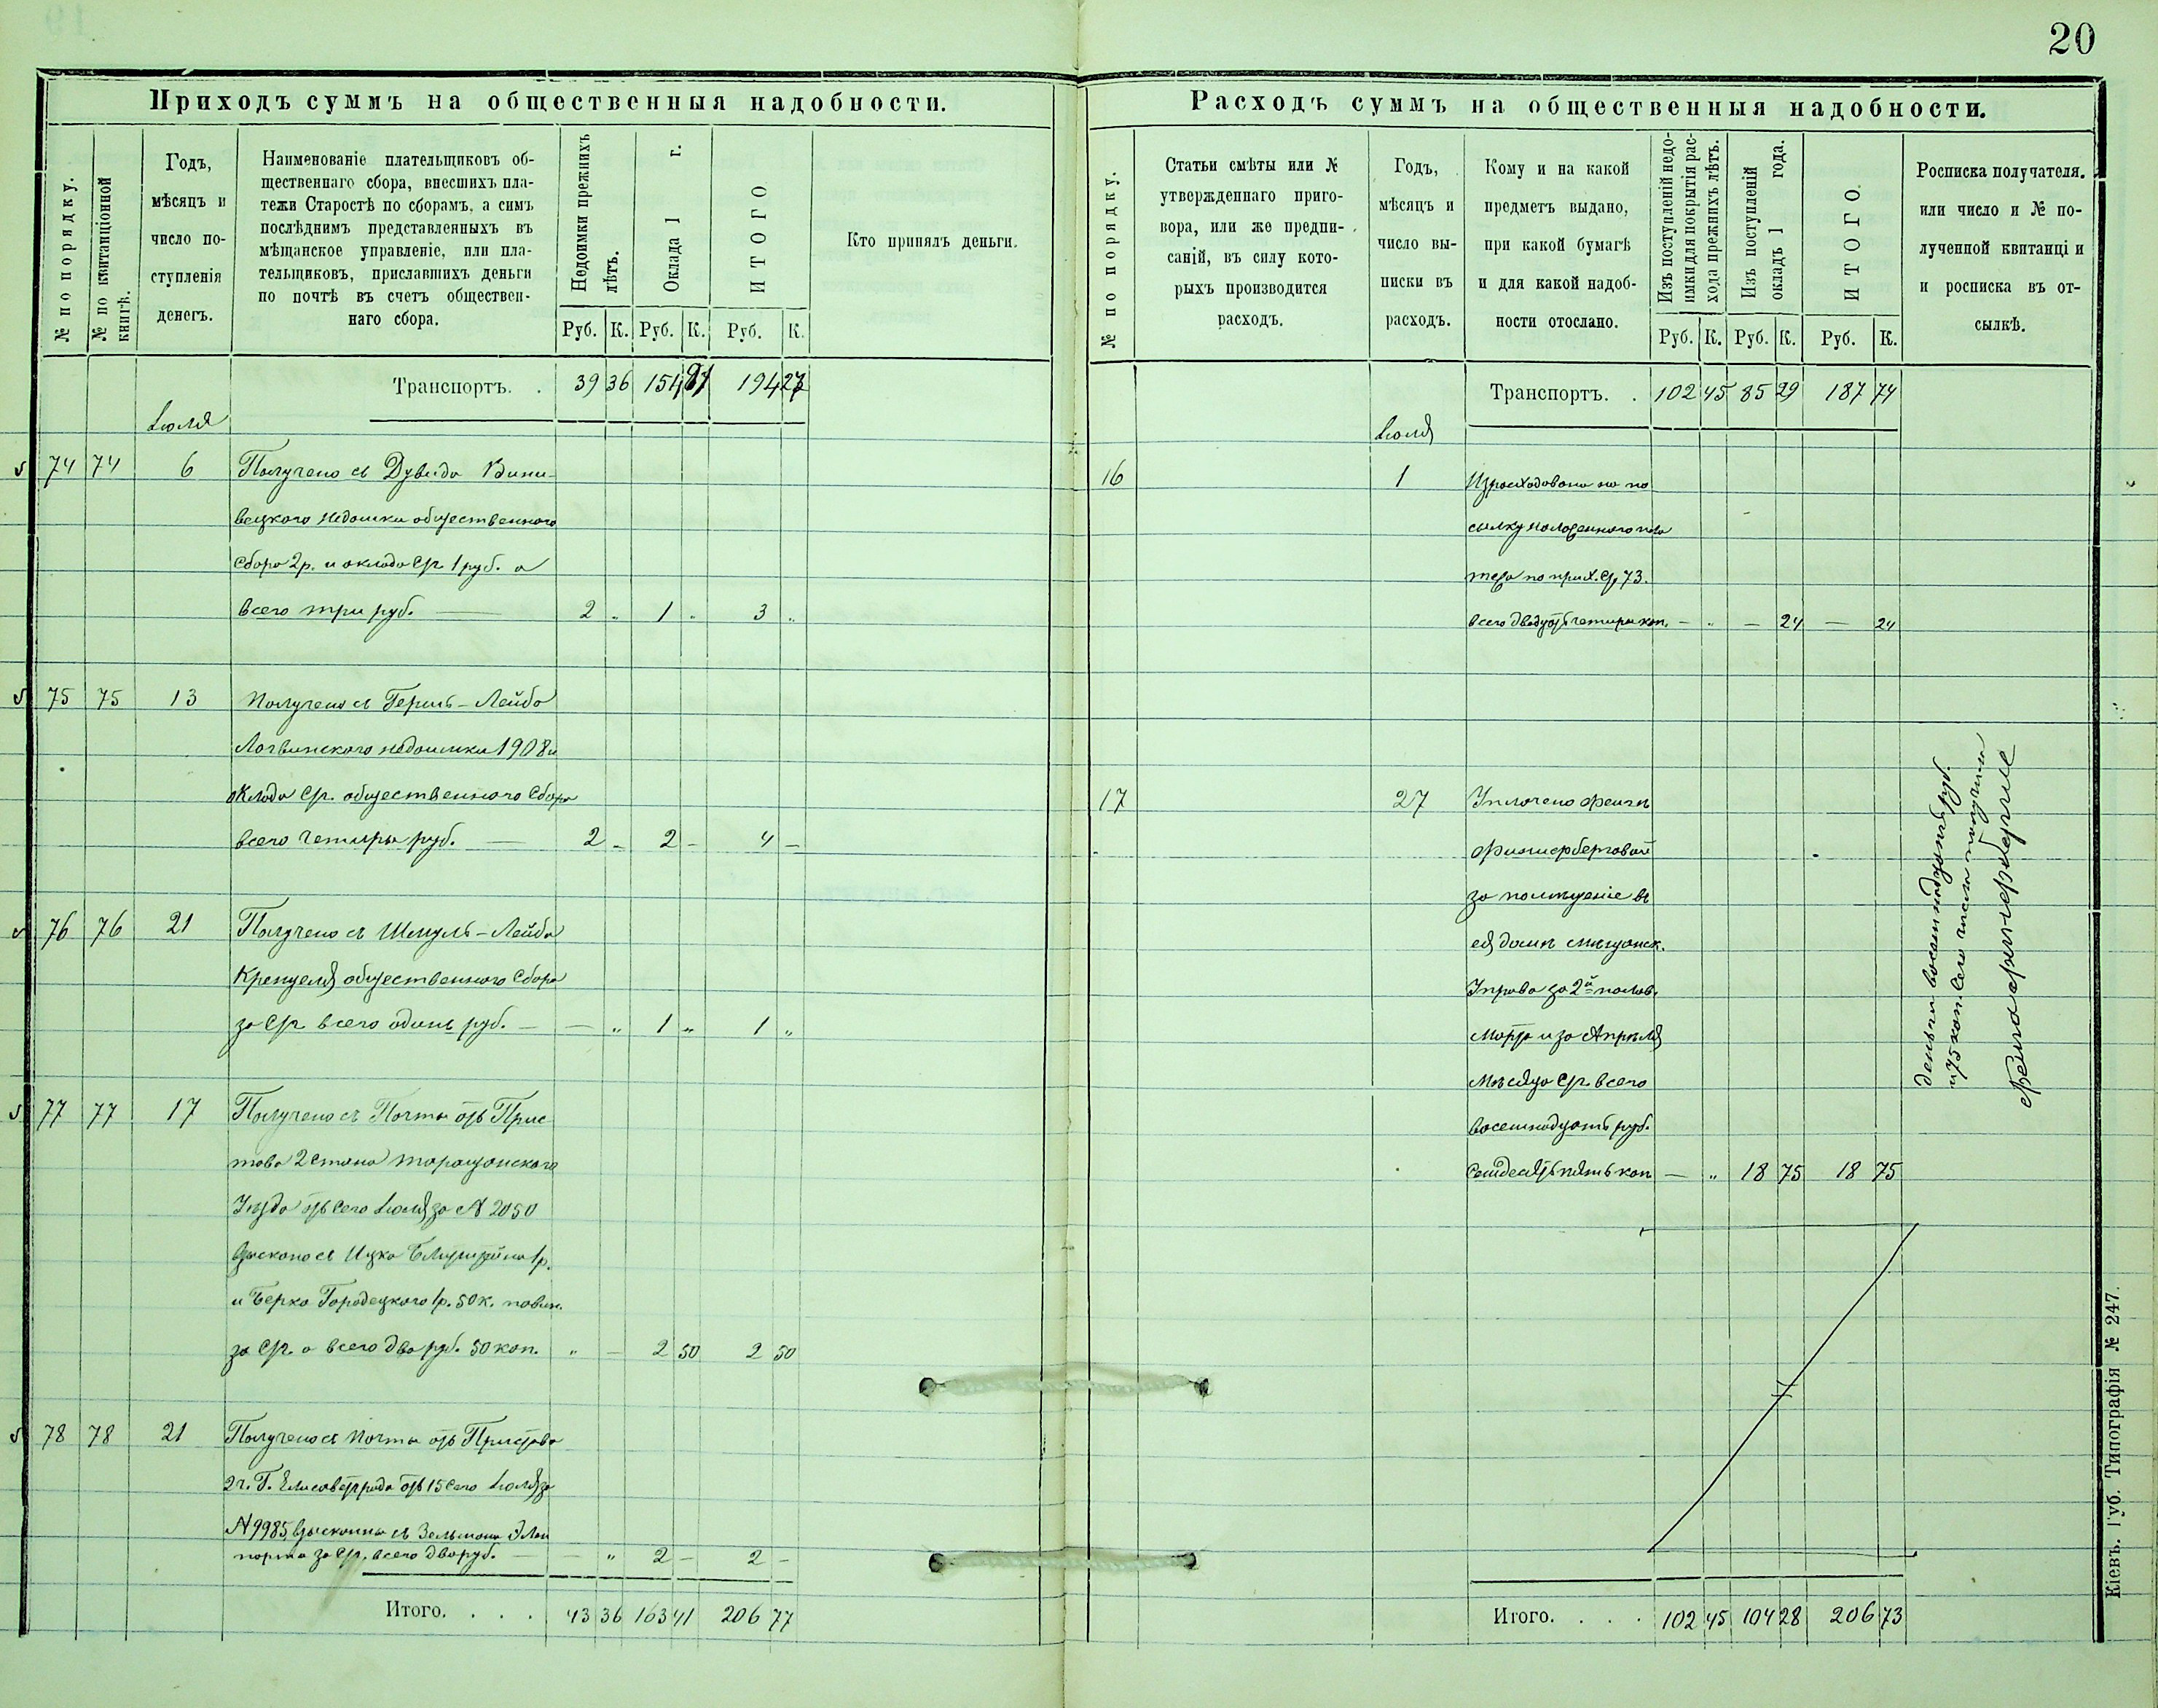 20
Приходъ суммъ на общественныя надобности.
№ по порядку.
№ по квитанціонной книгѣ.
Годъ,
мѣсяцъ и
число по-
ступленія
денегъ.
Наименованіе плательщиковъ об-
щественнаго сбора, внесшихъ пла-
тежи Старостѣ по сборамъ, а симъ
послѣднимъ представленныхъ въ
мѣщанское управленіе, или пла-
тельщиковъ, приславшихъ деньги
по почтѣ въ счетъ обществен-
наго сбора.
Недоимки прежнихъ
лѣтъ.
Оклада 1 г.
ИТОГО
Кто принялъ деньги.
Руб. К. Руб. К. Руб. К.
Транспортъ. . 39 36 154 194 27
Іюля
74 74 6 Получено съ Дувида Вини-
вецкого недоимки общественного
сбора 2р. и оклада с/г. 1 руб. а
всего три руб. — 2 „ 1 „ 3 „
75 75 13 Получено съ Гершъ-Лейба
Логвинского недоимки 1908 и
оклада с/г. общественного сбора
всего четыри руб. — 2 - 2 - 4 -
76 76 21 Получено съ Шмуль-Лейба
Кренцеля общественного сбора
за с/г всего одинъ руб. — — „ 1 „ 1 „
77 77 17 Получено съ Почты отъ Прис
тава 2 стана таращанского
Уѣзда отъ сего Іюля за № 2050
взыскано съ Ицка 1р.
и Берка Городецкого 1р. 50к. повин.
за с/г. а всего два руб. 50 коп. „ — 2 50 2 50
78 78 21 Получено съ почты отъ Пристава
2 ч. Г. Елисаветграда отъ 15 сего Іюля за
№ 9985, взысканны съ Зельмана
за с/г. всего два руб. — — „ 2 — 2 —
Итого. . . . 43 36 163 41 206 77
Расходъ суммъ на общественныя надобности.
№ по порядку.
Статьи смѣты или №
утвержденнаго приго-
вора, или же предпи-
саній, въ силу кото-
рыхъ производится
расходъ.
Годъ,
мѣсяцъ и
число вы-
писки въ
расходъ.
Кому и на какой
предметъ выдано,
при какой бумагѣ
и для какой надоб-
ности отослано.
Изъ поступленій недо-
имки для покрытія рас-
хода прежнихъ лѣтъ.
Изъ поступленій
окладъ 1 года.
ИТОГО.
Росписка получателя.
или число и № по-
лученной квитанці и
и росписка въ от-
сылкѣ.
Руб. К. Руб. К. Руб. К.
Транспортъ. . 102 45 85 29 187 74
Іюля
16 1 Израсходовано на по
сылку наложенного пла
тежа по прих. ст. 73.
всего двадцать четыри коп. — „ — 24 — 24
17 27 Уплочено Фейгѣ
Фингербертовой
за помѣщеніе въ
ея домѣ мѣщанск.
Управа за 2й полов.
Марта и за Апрѣля
мѣсяца с/г. всего
восемнадцать руб.
семдесять пять коп — „ 18 75 18 75
деньги восемнадцать руб.
и 75 коп сего числа получила
Итого. . . . 102 45 104 28 206 73
Кіевъ. Губ. Типографія № 247.